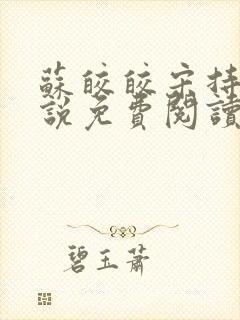 蘇皎皎宋持
說免費閱讀
碧玉蕭